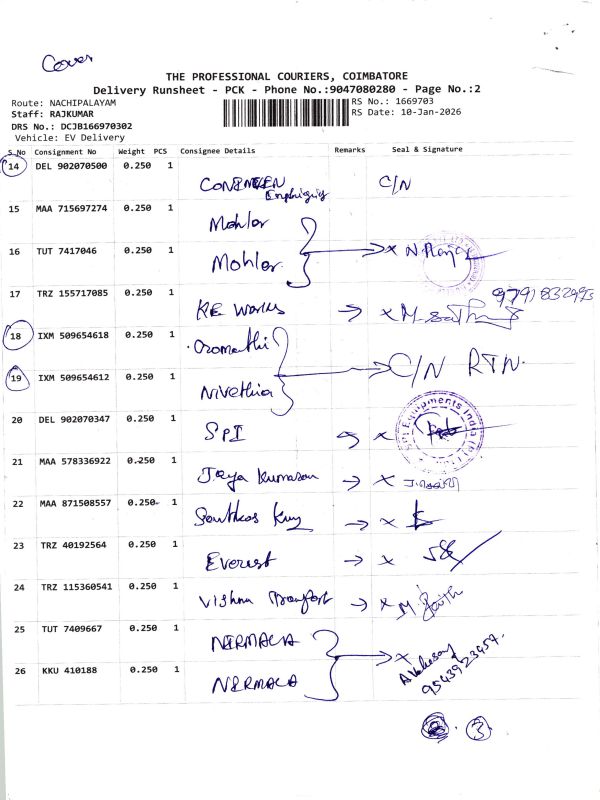 Cover
THE PROFESSIONAL COURIERS, COIMBATORE
Delivery Runsheet - PCK - Phone No.:9047080280 - Page No.:2
Route: NACHIPALAYAM
RS No.: 1669703
Staff: RAJKUMAR
RS Date: 10-Jan-2026
DRS No.: DCJB166970302
Vehicle: EV Delivery
S.No Consignment No Weight PCS Consignee Details Remarks Seal & Signature
14 DEL 902070500 0.250 1
C/N
15 MAA 715697274 0.250 1
Mohlor
16 TUT 7417046 0.250 1
Mohlor x
17 TRZ 155717085 0.250 1
KE Works → x
18 IXM 509654618 0.250 1
19 IXM 509654612 0.250 1
C/N RTN.
Nivethia
20 DEL 902070347 0.250 1
SPI x
SPI Equipments India (P) Ltd
21 MAA 578336922 0.250 1
Jaya Kumaran → x
22 MAA 871508557 0.250 1
→ x
23 TRZ 40192564 0.250 1
Everest → x
24 TRZ 115360541 0.250 1
Vishnu Transport → x
25 TUT 7409667 0.250 1
NIRMALA x
26 KKU 410188 0.250 1
NIRMALA
9543923457.
3